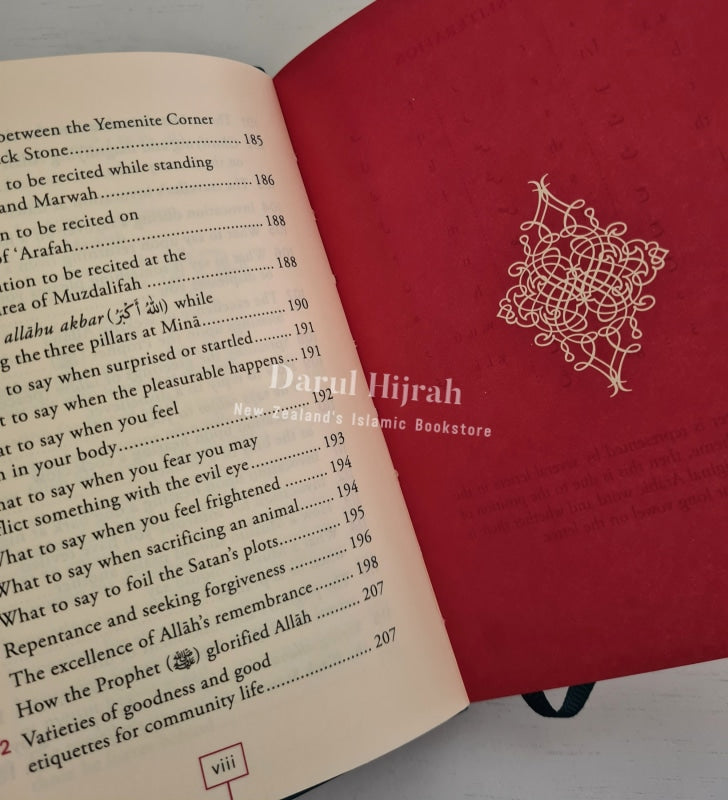 between the Yemenite Corner
ck Stone 185
to be recited while standing
and Marwah 186
n to be recited on
of ‘Arafah 188
ation to be recited at the
area of Muzdalifah 188
allāhu akbar (الله أكبر) while
g the three pillars at Minā 190
to say when surprised or startled 191
t to say when the pleasurable happens 191
at to say when you feel
n in your body 192
hat to say when you fear you may
flict something with the evil eye 193
What to say when you feel frightened 194
What to say when sacrificing an animal 194
What to say to foil the Satan’s plots 195
Repentance and seeking forgiveness 196
The excellence of Allāh’s remembrance 198
How the Prophet (ﷺ) glorified Allāh 207
2 Varieties of goodness and good
etiquettes for community life 207
viii
Darul Hijrah
New Zealand's Islamic Bookstore